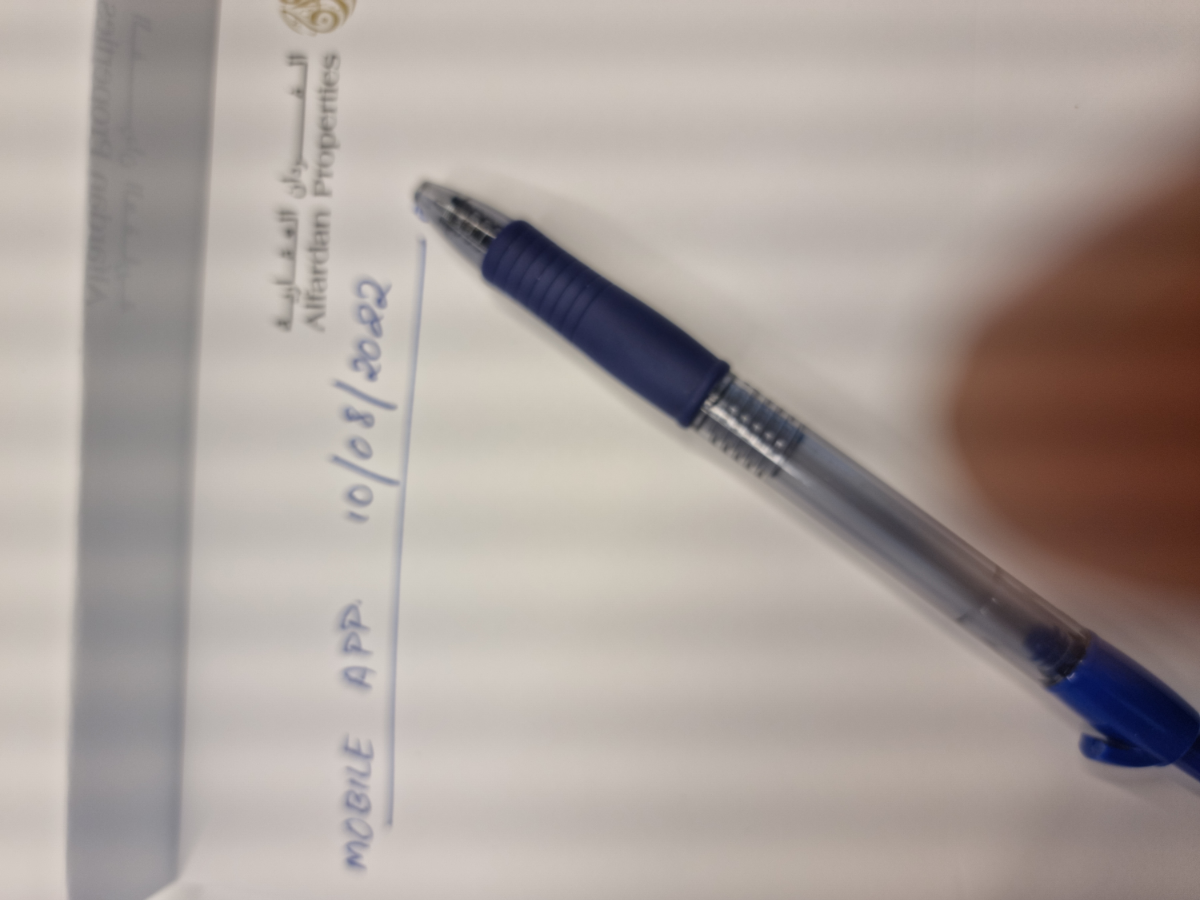 الفردان العقارية
Alfardan Properties
MOBILE APP. 10/08/2022